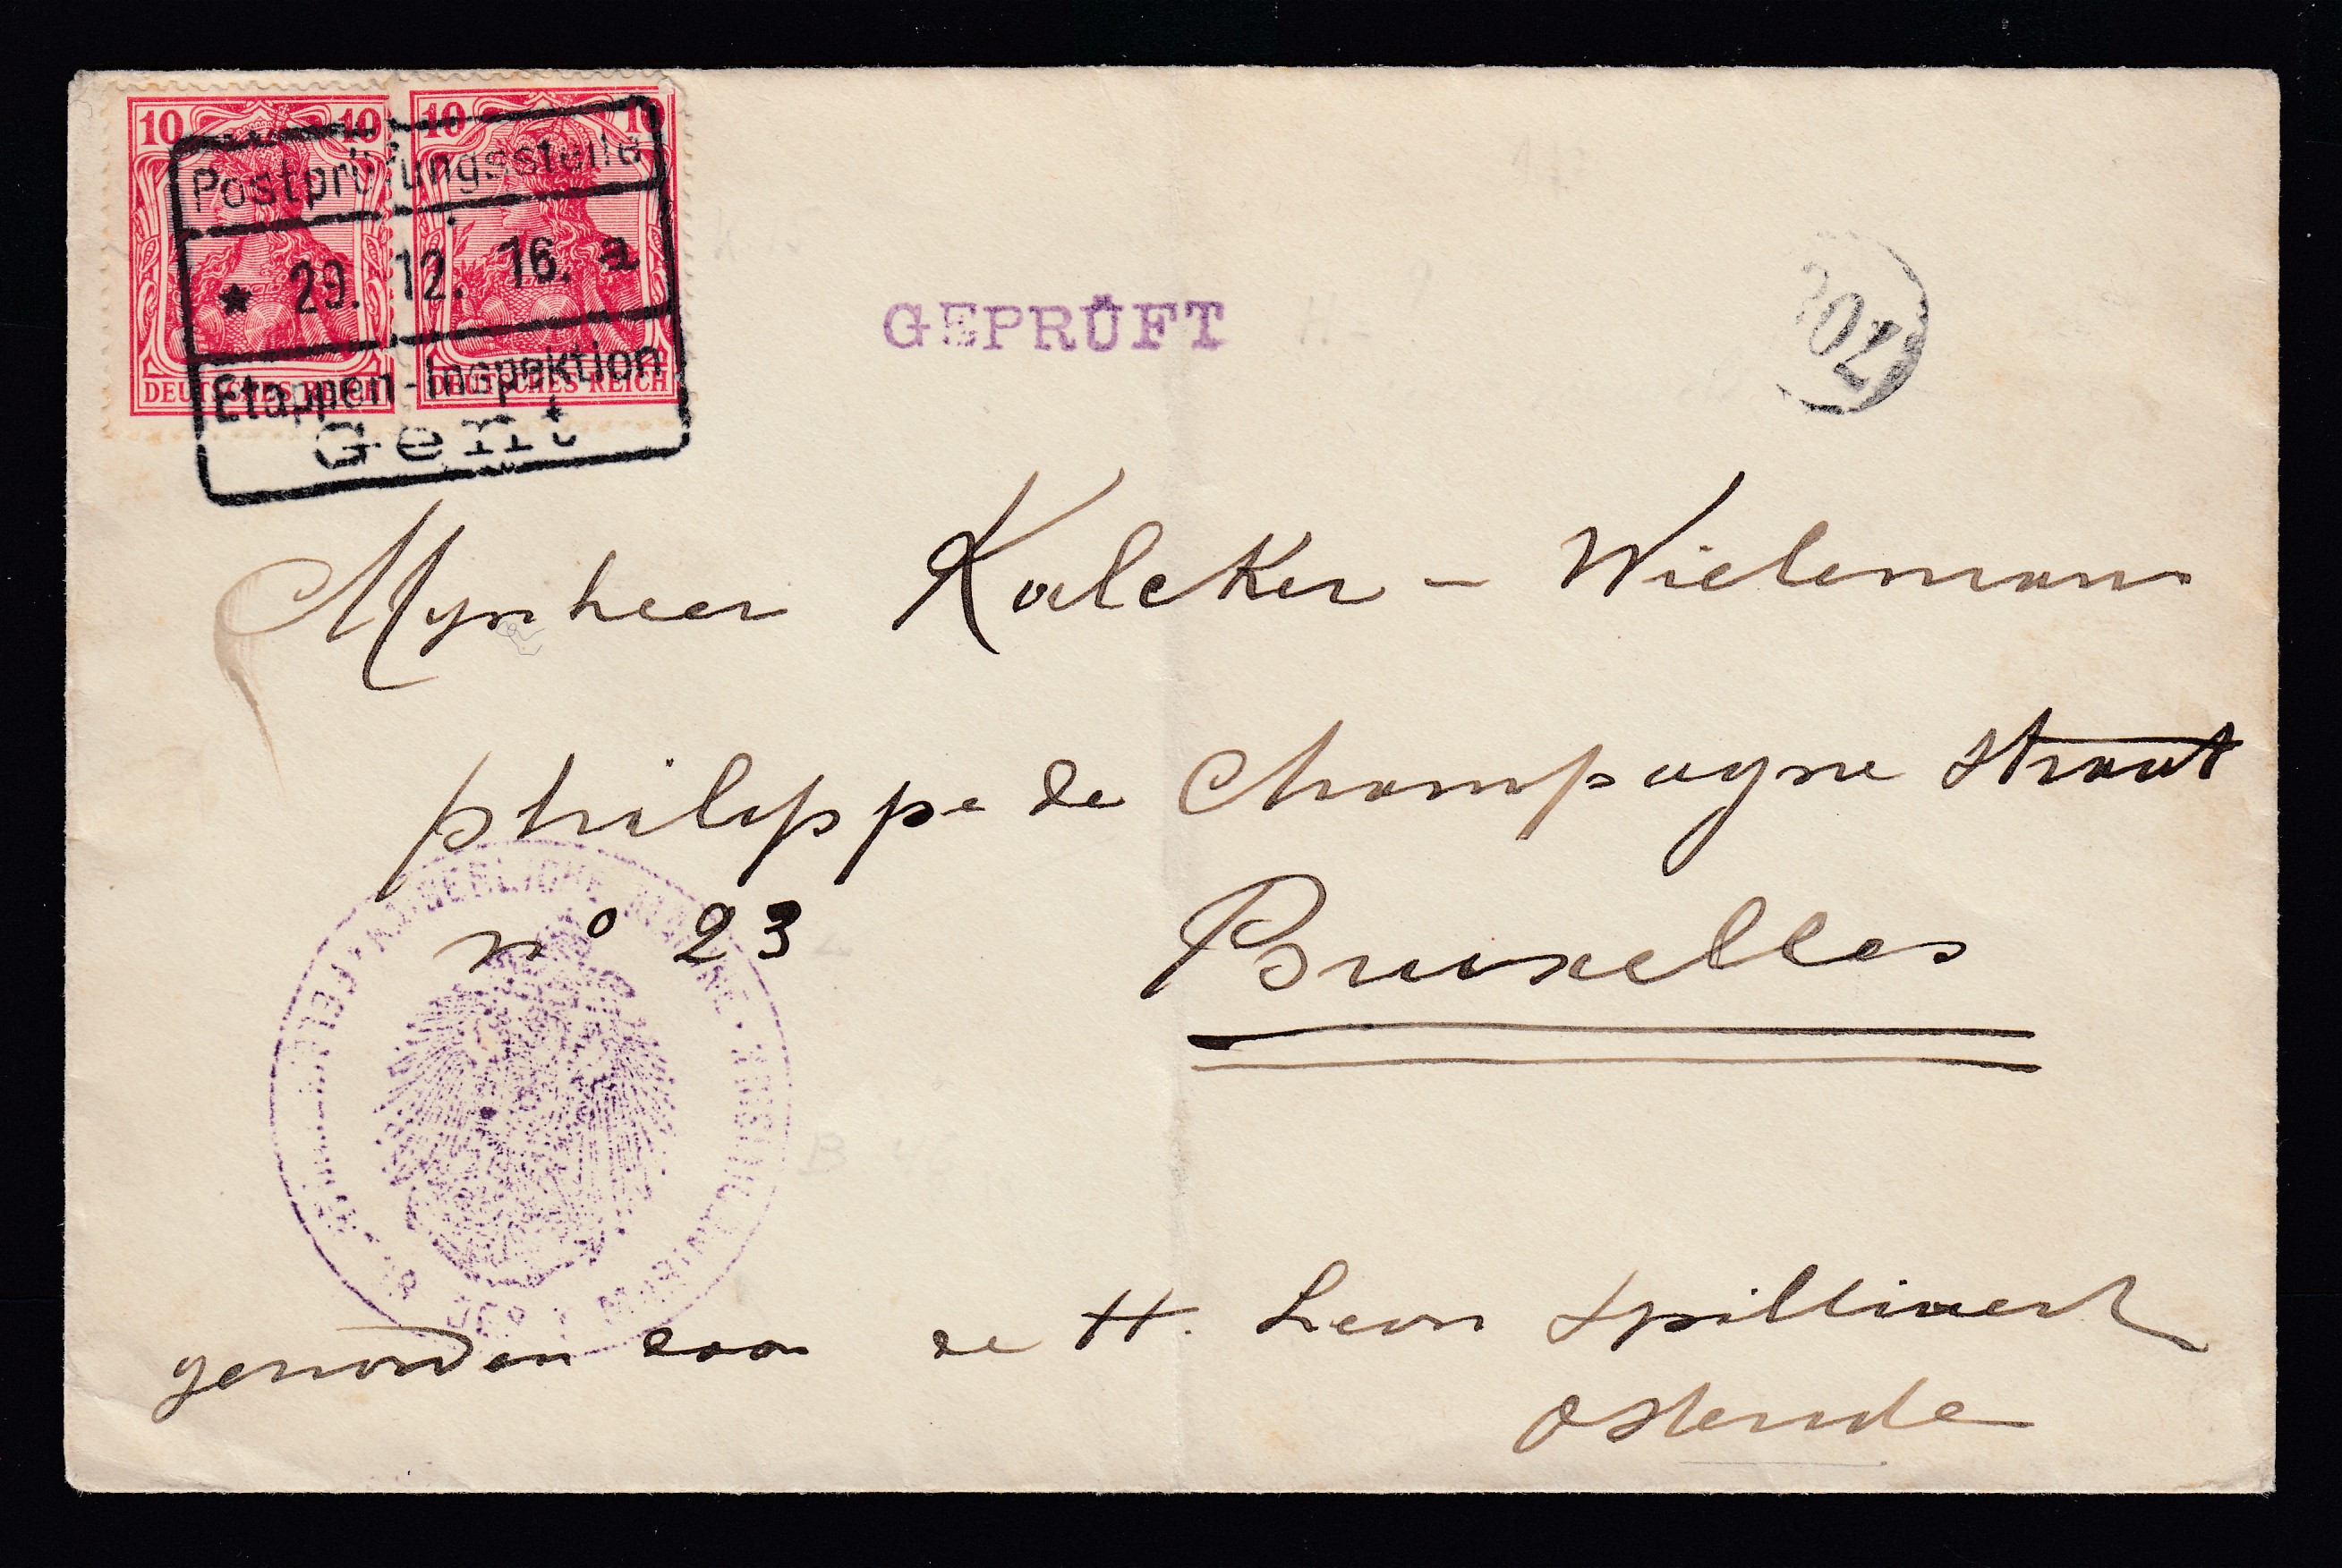 10 10 10 10
Postprüfungsstelle
* 29. 12. 16. a
DEUTSCHES REICH DEUTSCHES REICH
Etappen-Inspektion
Gent
GEPRÜFT
Mynheer Kalcker - Wielemans
philippe de Champagne straat
n° 23
Bruxelles
KAISERLICHE MARINE
gezonden van de H. Leon Spilliaert
Ostende